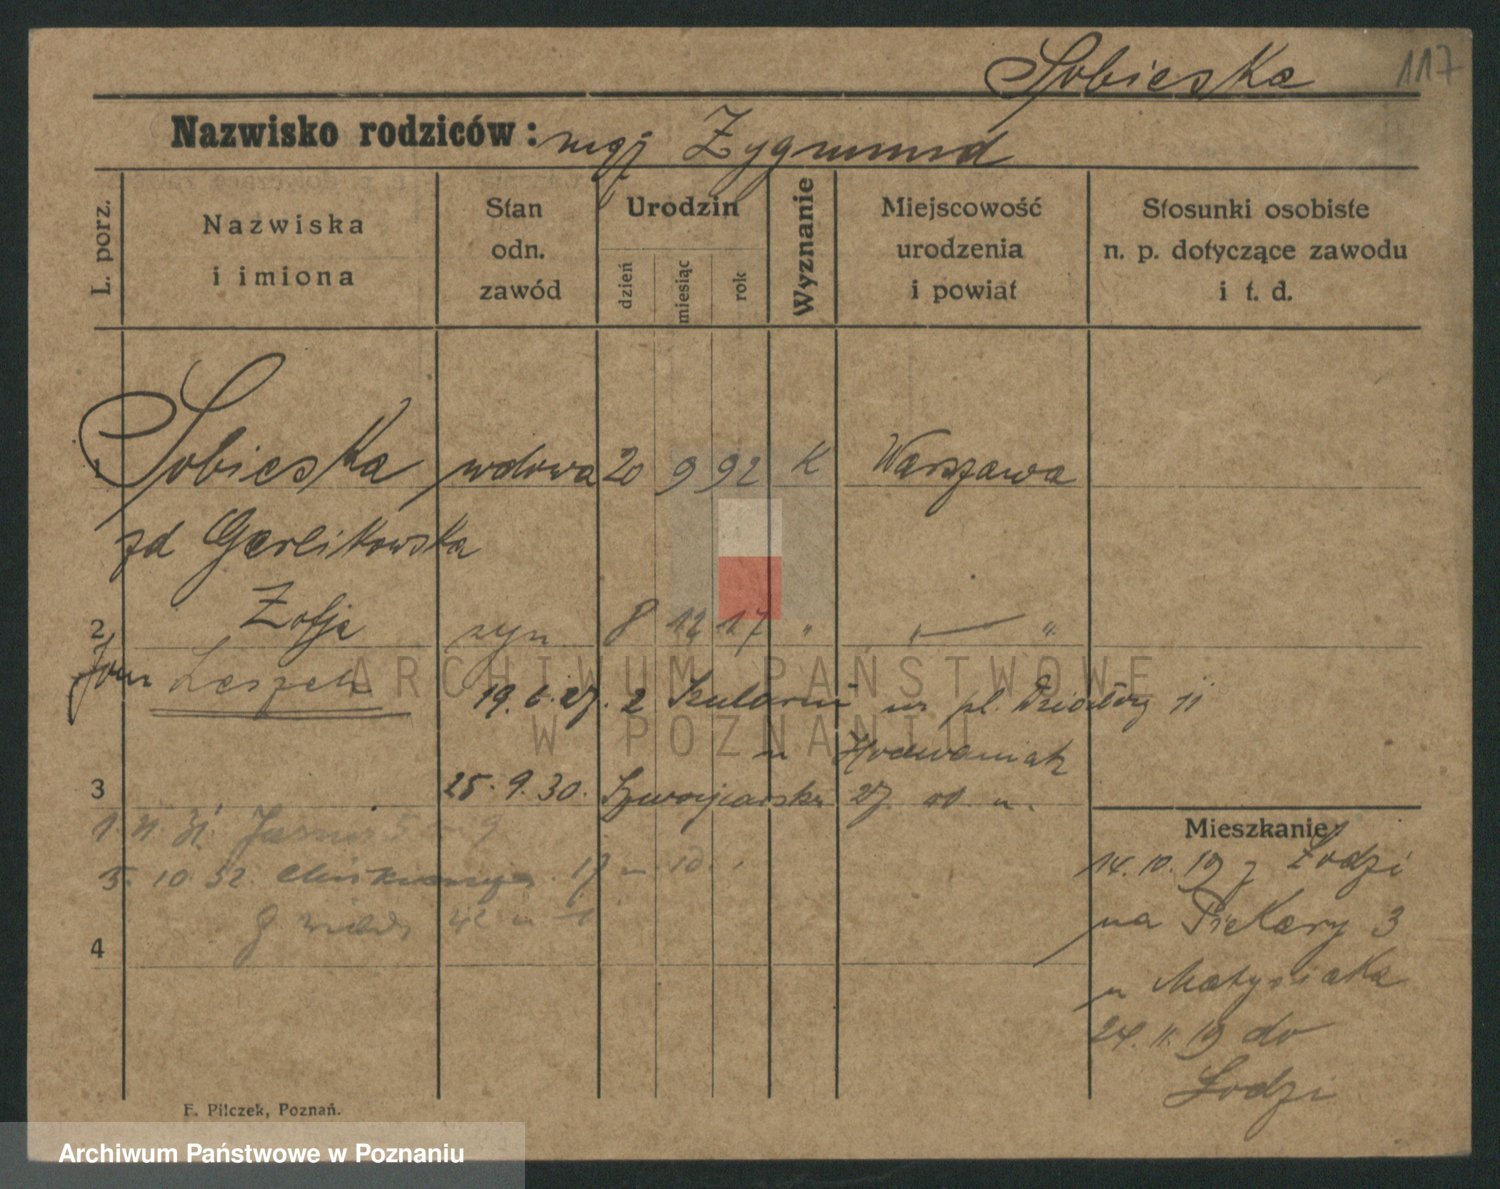 Sobieska 117
Nazwisko rodziców: mąż Zygmund
L. porz.
Nazwiska
i imiona
Stan
odn.
zawód
Urodzin
dzień
miesiąc
rok
Wyznanie
Miejscowość
urodzenia
i powiat
Stosunki osobiste
n. p. dotyczące zawodu
i t. d.
1 Sobieska wdowa 20 9 92 K Warszawa
zd Gerlikowska
Zofja
2 syn 8 12 17 " — "
Jan Leszek
19. 6. 27. 2 pl. Działowy 11
3 25. 9. 30. 27
5. 10. 32. 17 m 10.
42 m 1
4
Mieszkanie
14. 10. 19 z Łodzi
na Piekary 3
u Matysiaka
24. 11. 19 do
Łodzi
F. Pilczek, Poznań.
ARCHIWUM PAŃSTWOWE
W POZNANIU
Archiwum Państwowe w Poznaniu